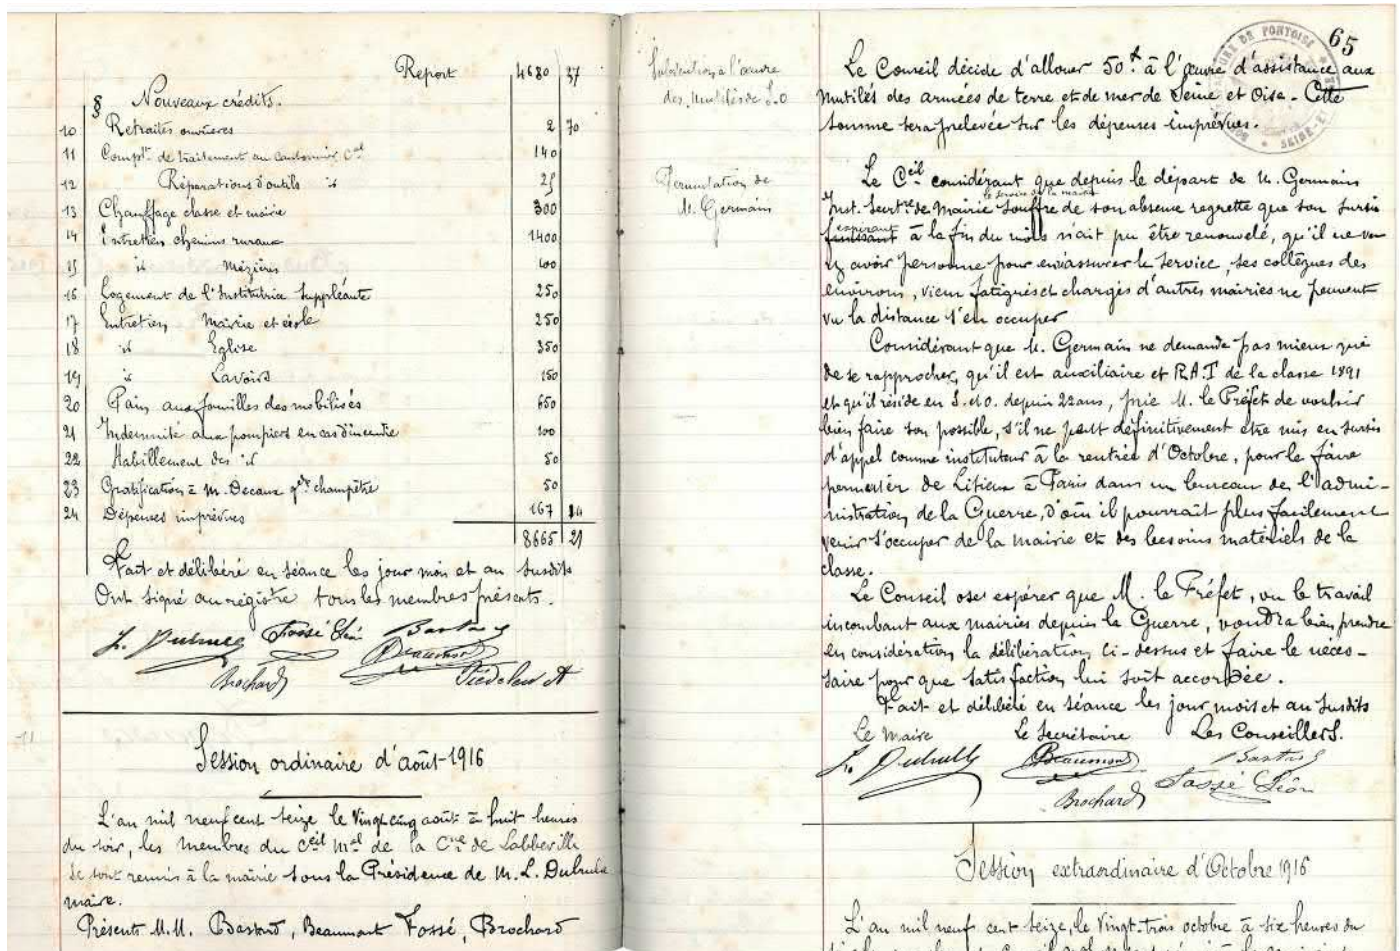 Report 4680 37
§ Nouveaux crédits.
10 Retraites ouvrières 2 70
11 Complt. de traitement au cantonnier Cal 140
12 Réparations d'outils id 25
13 Chauffage classe et mairie 300
14 Entretien chemins ruraux 1400
15 id Mézières 400
16 Logement de l'Institutrice Suppléante 250
17 Entretien Mairie et école 250
18 id Eglise 350
19 id Lavoirs 150
20 Pain aux familles des mobilisés 650
21 Indemnité aux pompiers en cas d'incendie 100
22 Habillement des id 50
23 Gratification à M. Decaux gde champêtre 50
24 Dépenses imprévues 167
8665 21
Fait et délibéré en séance les jour mois et an susdits
Ont signé au registre tous les membres présents.
Fossé Léon Bastard
Beaumont
Brochard
Session ordinaire d'août 1916
L'an mil neuf cent seize le vingt cinq août à huit heures
du soir, les membres du Ceil Mal de la Cne de Labbeville
se sont réunis à la mairie sous la Présidence de M. L. Dubrulle
maire.
Présents M.M. Bastard, Beaumont Fossé, Brochard
65
PONTOISE
Subvention à l'œuvre
des Mutilés de S.O
Le Conseil décide d'allouer 50f à l'œuvre d'assistance aux
Mutilés des armées de terre et de mer de Seine et Oise - Cette
somme sera prelevée sur les dépenses imprévues.
Permutation de
M. Germain
Le Ceil considérant que depuis le départ de M. Germain
le service de la mairie
Inst. Secrtre de Mairie souffre de son absence regrette que son sursis
expirant
finissant à la fin du mois n'ait pu être renouvelé, qu'il ne va
y avoir personne pour en assurer le service, ses collègues des
environs, vieux fatigués et chargés d'autres mairies ne peuvent
vu la distance s'en occuper
Considérant que M. Germain ne demande pas mieux que
de se rapprocher, qu'il est auxiliaire et R.A.T de la classe 1891
et qu'il réside en S. et O. depuis 22 ans, prie M. le Préfet de vouloir
bien faire son possible, s'il ne peut définitivement etre mis en sursis
d'appel comme instituteur à la rentrée d'Octobre, pour le faire
permuter de Lisieux à Paris dans un bureau de l'admi-
nistration de la Guerre, d'où il pourrait plus facilement
venir s'occuper de la mairie et des besoins matériels de la
classe.
Le Conseil ose espérer que M. le Préfet, vu le travail
incombant aux mairies depuis la Guerre, voudra bien prendre
en considération la délibération ci-dessus et faire le néces-
saire pour que satisfaction lui soit accordée.
Fait et délibéré en séance les jour mois et an susdits
Le Maire Le Secrétaire Les Conseillers.
Beaumont Bastard
Brochard Fossé Léon
Session extraordinaire d'Octobre 1916
L'an mil neuf cent seize, le vingt-trois octobre à six heures du